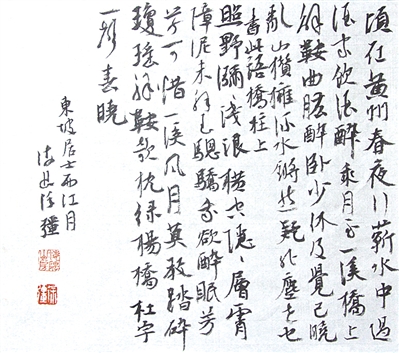 頃在黄州春夜行蘄水中過
酒家飲酒醉乘月至一溪橋上
解鞍曲肱醉卧少休及覺已曉
亂山攢擁流水鏘然疑非塵世也
書此語橋柱上
照野瀰〻淺浪橫空隱〻層霄
障泥未解玉驄驕我欲醉眠芳
草可惜一溪風月莫教踏碎
瓊瑤解鞍欹枕綠楊橋杜宇
一聲春曉
東坡居士西江月